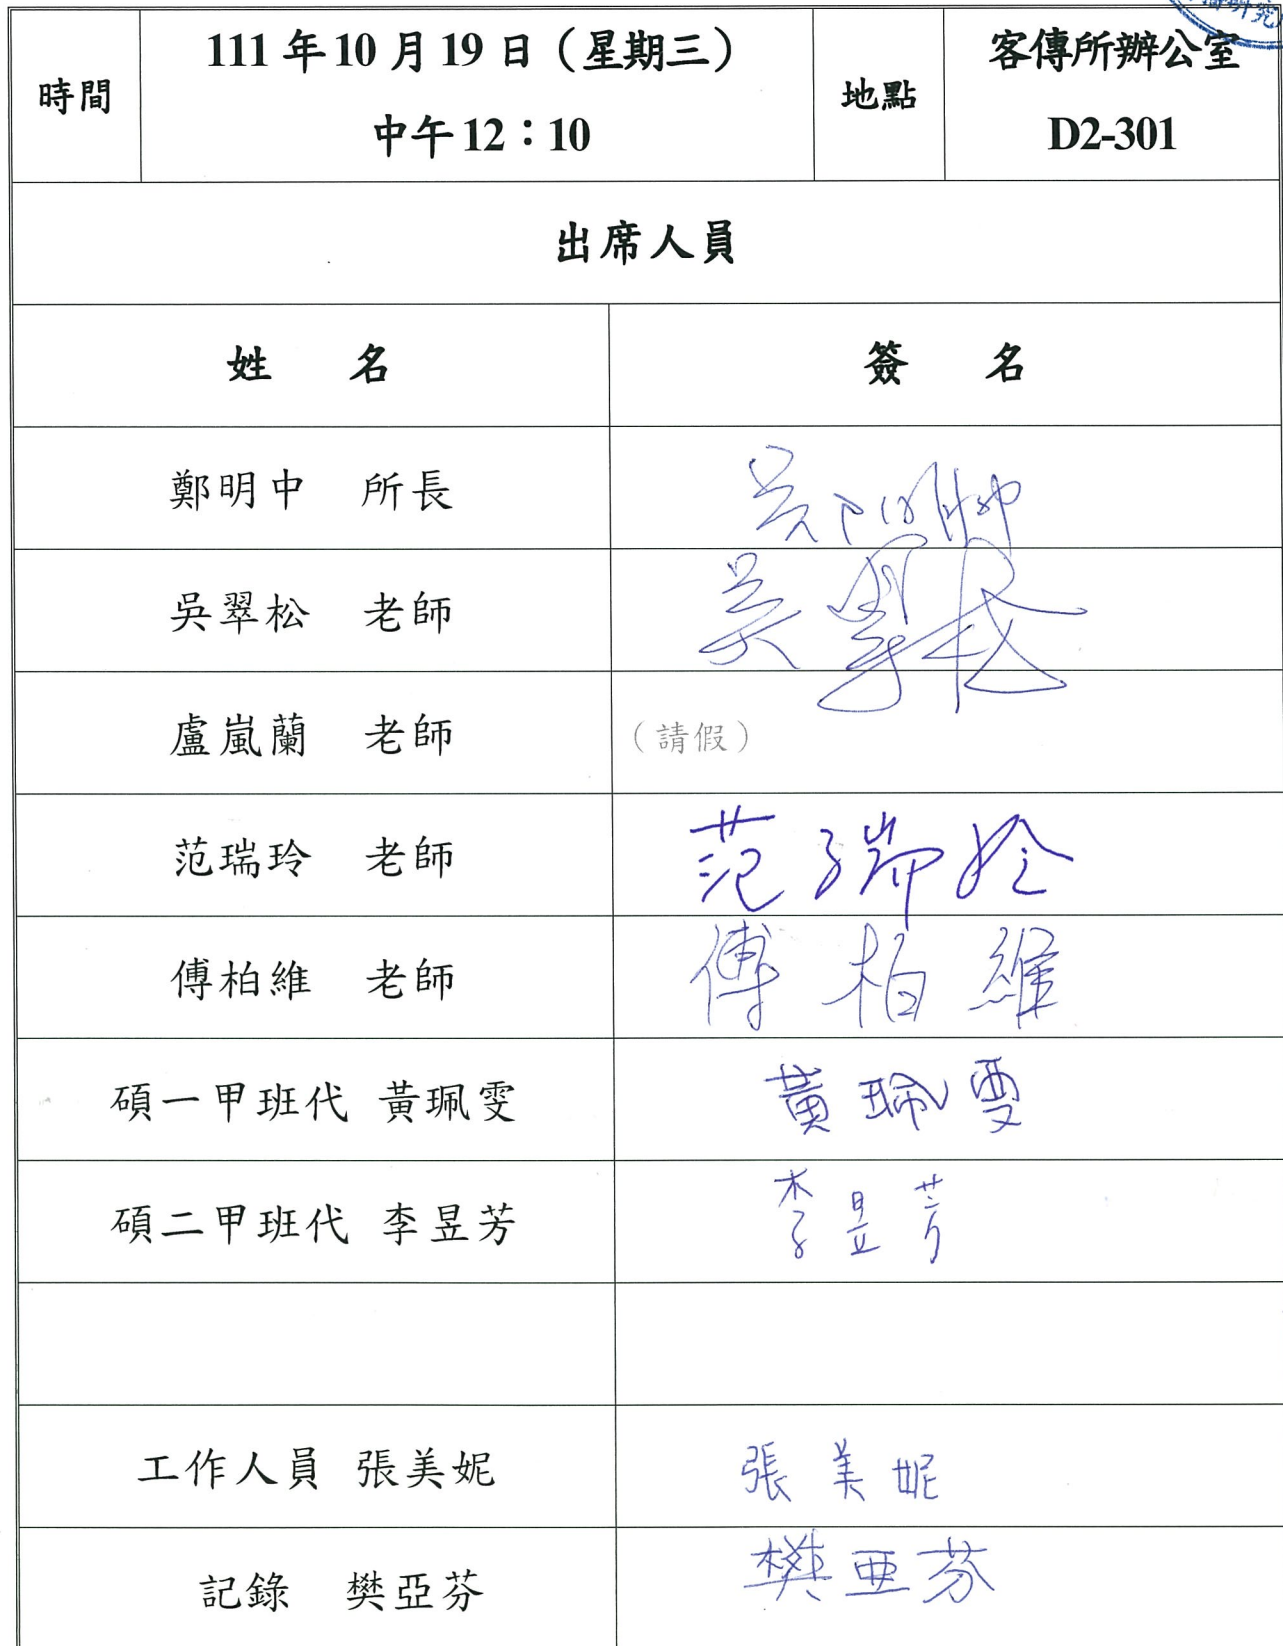 時間
111年10月19日（星期三）
中午12：10
地點
客傳所辦公室
D2-301
出席人員
姓 名 簽 名
鄭明中 所長
吳翠松 老師 吳翠松
盧嵐蘭 老師 （請假）
范瑞玲 老師 范瑞玲
傅柏維 老師 傅柏維
碩一甲班代 黃珮雯 黃珮雯
碩二甲班代 李昱芳 李昱芳
工作人員 張美妮 張美妮
記錄 樊亞芬 樊亞芬